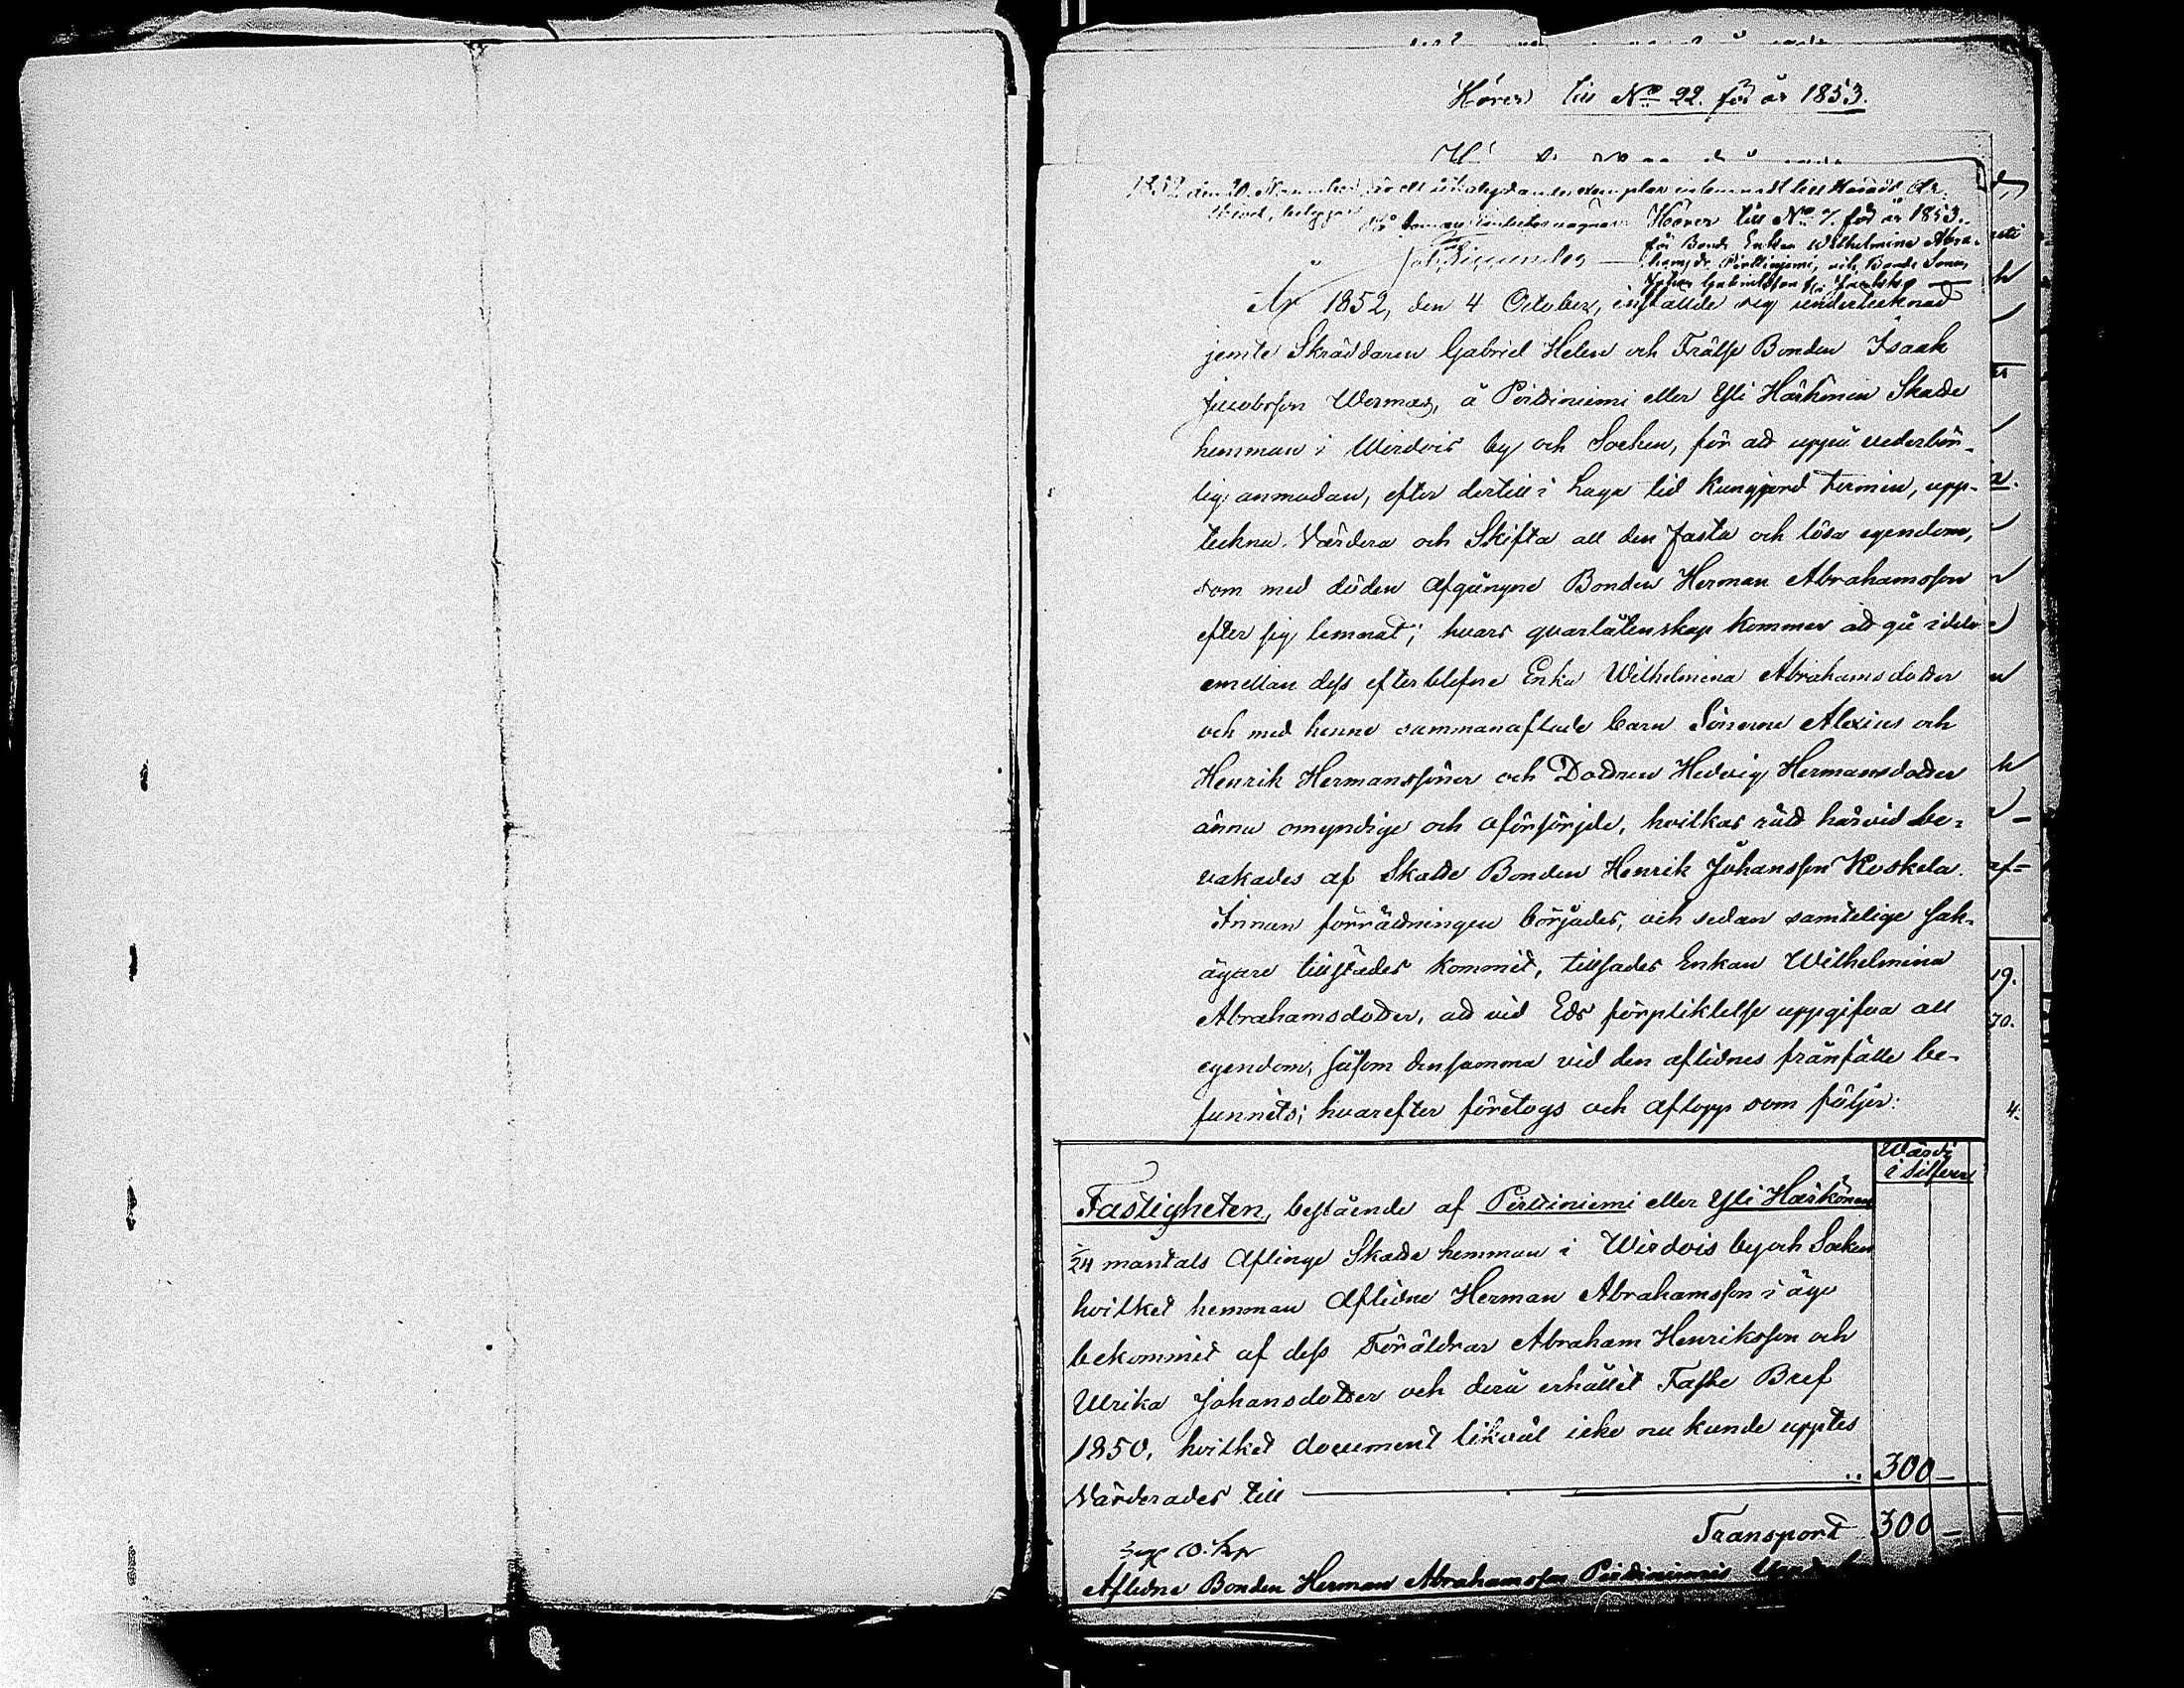 Hörer till No 22. för år 1853.
1852 den 20. November är ett lika lydande exemplar inlemnadt till Härads Ar-
chivet, betygar
Hörer till No 7. för år 1853.
för Bonde Enkan Wilhelmina Abra-
hamsdr Pirttiniemi, och Bonde Sonen
Johan Gabrielsson
År 1852, den 4 October, inställde sig undertecknad
jemte Skräddaren Gabriel Helin och Frälse Bonden Isaak
Jacobsson Wermas, å Pirttiniemi eller Yli Härkönen Skatte
hemman i Wirdois by och Socken, för att uppå vederbör-
lig anmodan, efter dertill i Laga tid Kungjord termin, upp-
teckna, Värdera och Skifta all den fasta och lösa egendom,
som med döden Afgångne Bonden Herman Abrahamsson
efter sig lemnat; hvars qvarlåtenskap kommer att gå i delo
emellan dess efterblefne Enka Wilhelmina Abrahamsdotter
och med henne sammanaflade barn Sönerne Alexius och
Henrik Hermanssöner och Dottren Hedvig Hermansdotter
ännu omyndige och oförsörjde, hvilkas rätt härvid be-
vakades af Skatte Bonden Henrik Johansson Koskela.
Innan förrättningen börjades, och sedan samtelige sak-
ägare tillstädes kommit, tillsades Enkan Wilhelmina
Abrahamsdotter, att vid Eds förpliktelse uppgifva all
egendom, såsom densamma vid den aflidnes frånfälle be-
funnits; hvarefter företogs och aflopp som följer:
Wärde
i silfver
Fastigheten, bestående af Pirttiniemi eller Yli Härkönen
1/24 mantals Aflinge Skatte hemman i Wirdois by och Socken
hvilket hemman Aflidne Herman Abrahamsson i ägo
bekommit af dess Föräldrar Abraham Henriksson och
Ulrika Johansdotter och derå erhållit Faste Bref
1850, hvilket document likväl icke nu kunde upptes
Värderades till 300 –
Transport 300 –
Aflidne Bonden Herman Abrahamsson Pirttiniemis